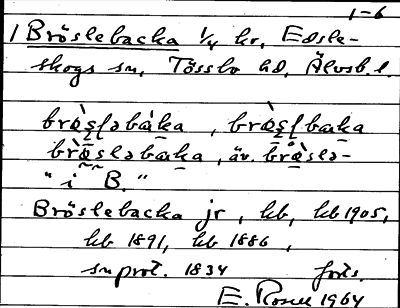 1-6
1 Bröslebacka 1/4 kr, Edsle-
skogs sn, Tössbo hd, Älvsb. l.
brœ̀şļəbàka, brœ̀şļbaka
brœ̀sləbaka, äv. brœ̀slə-
"i B."
Bröslebacka jr, kb, kb 1905,
kb 1891, kb 1886,
snprot. 1834 forts.
E. Rosell 1964